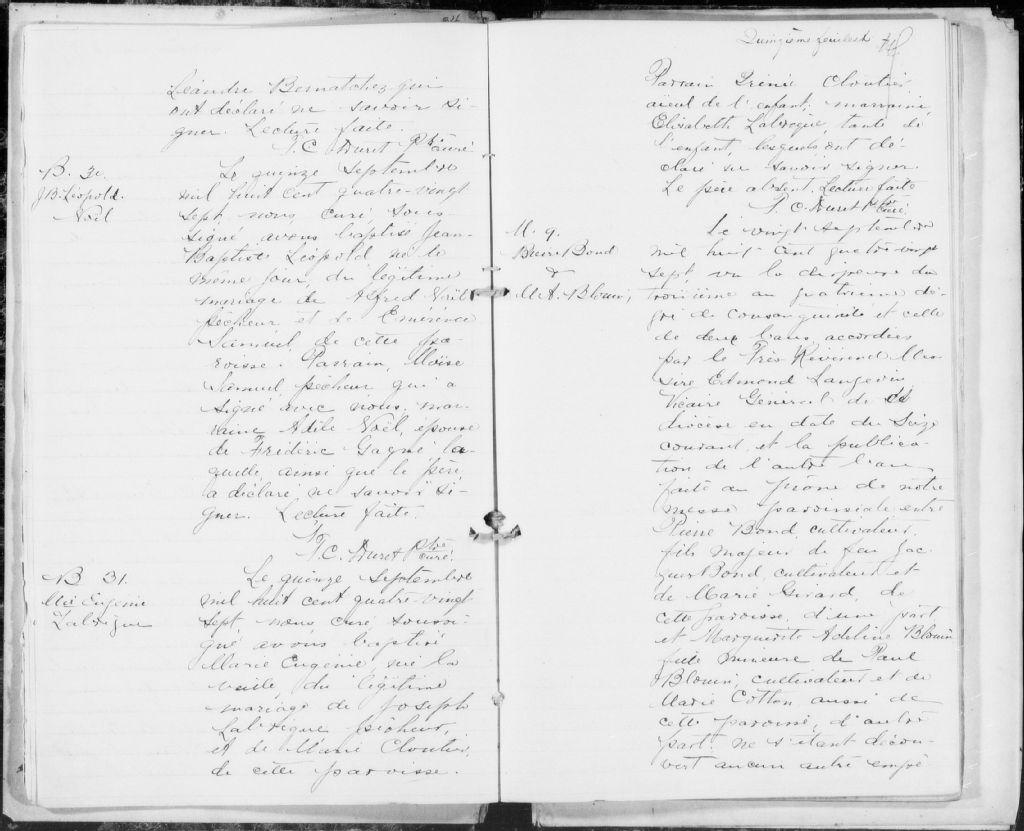 Léandre Bernatchez qui
ont déclaré ne savoir si-
gner. Lecture faite.
T. C. Duret Ptre curé
B. 30.
J. B. Léopold.
Noël
Le quinze Septembre
mil huit cent quatre-vingt
sept, nous curé, sous-
signé avons baptisé Jean-
Baptiste Léopold né le
même jour, du légitime
mariage de Alfred Noël
pêcheur et de Emérence
Samuel de cette pa-
roisse. Parrain, Moïse
Samuel pêcheur qui a
signé avec nous, mar-
raine Adèle Noël, épouse
de Frédéric Gagné la-
quelle, ainsi que le père
a déclaré ne savoir si-
gner. Lecture faite.
T. C. Duret Ptre curé.
B 31.
Mie Eugénie
Labrèque
Le quinze Septembre
mil huit cent quatre-vingt
sept nous curé soussi-
gné avons baptisé
Marie Eugénie née la
veille, du légitime
mariage de Joseph
Labrèque pêcheur,
et de Marie Cloutier,
de cette paroisse.
Quinzième feuillet
Parrain Cloutier
aïeul de l'enfant; marraine,
Elizabeth Labrèque, tante de
l'enfant, lesquels ont dé-
claré ne savoir signer.
Le père absent. Lecture faite
T. C. Duret Ptre curé.
M. 9.
Pierre Bond
&
M. A. Blouin,
Le vingt Septembre
mil huit cent quatre vingt
sept, vu la dispense du
troisième au quatrième de-
gré de consanguinité et celle
de deux bans accordées
par le Très Révérend Mes-
sire Edmond Langevin,
Vicaire Général de ce
diocèse en date du Seize
courant, et la publica-
tion de l'autre ban
faite au prône de notre
messe paroissiale entre
Pierre Bond, cultivateur,
fils majeur de feu Jac-
ques Bond, cultivateur et
de Marie Gerard, de
cette paroisse, d'une part
et Marguerite Adeline Blouin
fille mineure de Paul
Blouin, cultivateur et de
Marie Cotton aussi de
cette paroisse, d'autre
part: ne s'étant décou-
vert aucun autre empê